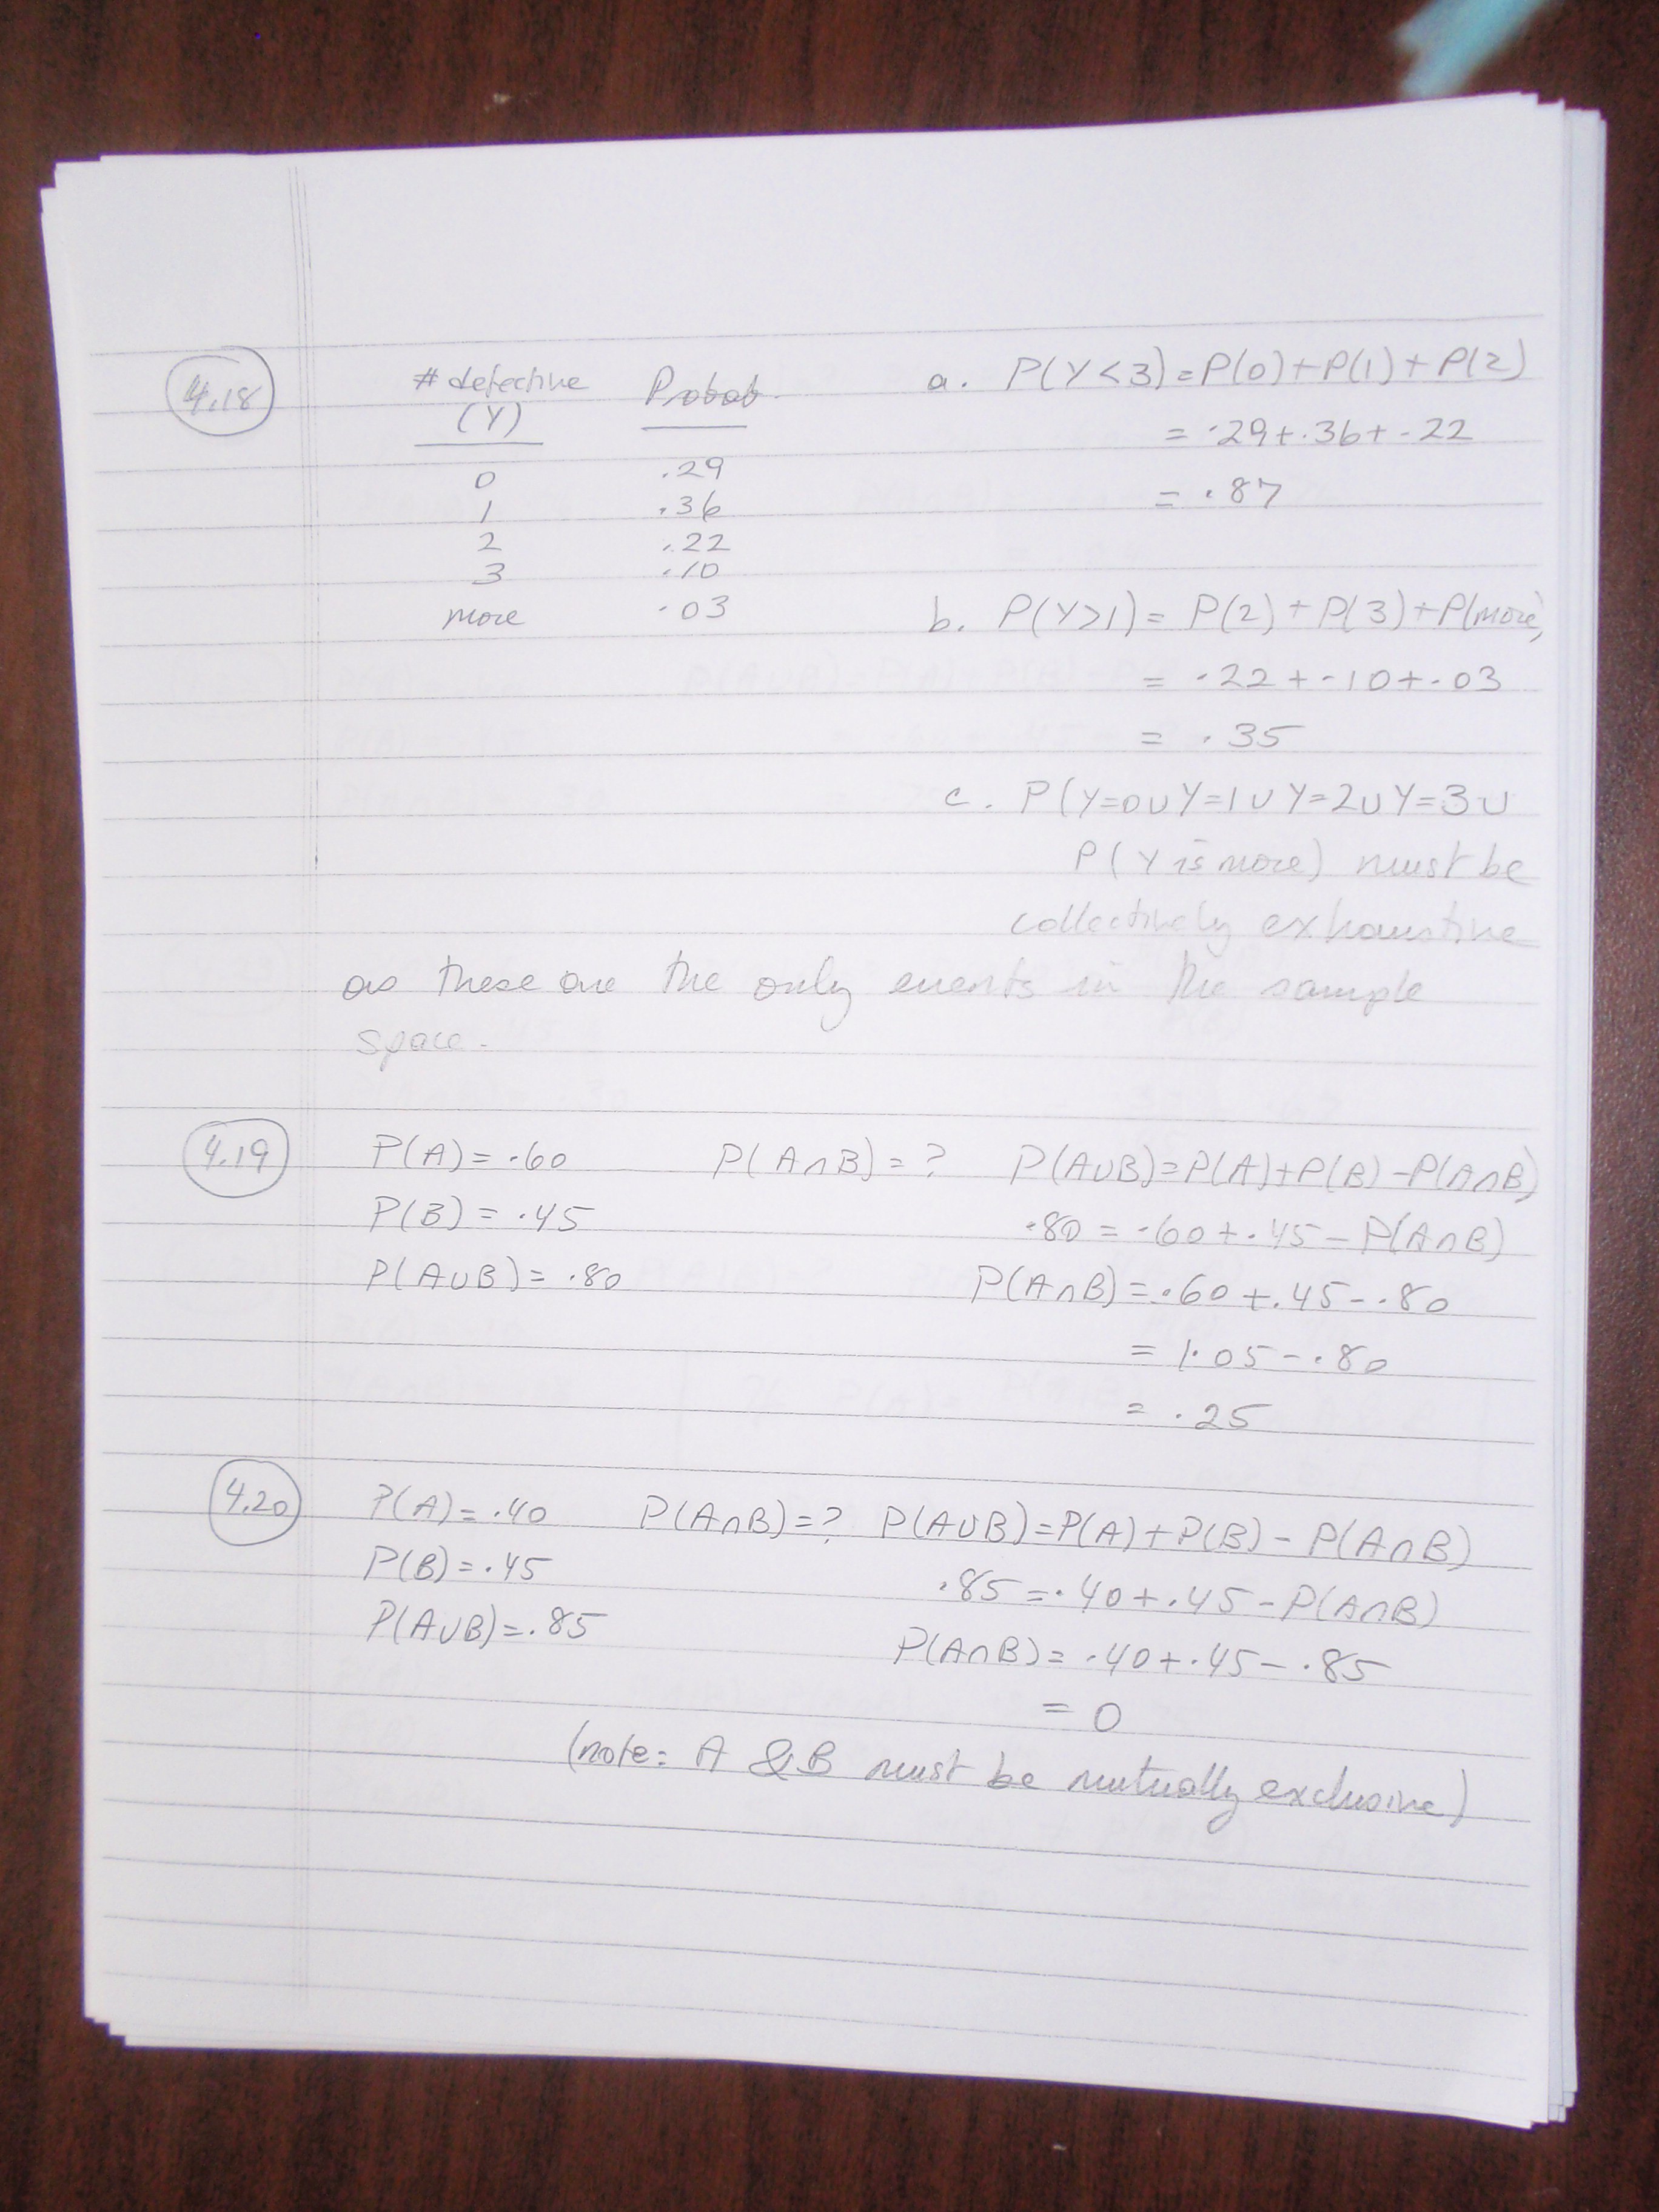 4.18
# defective Probab.
(Y)
0 .29
1 .36
2 .22
3 .10
more .03
a. P(Y<3)=P(0)+P(1)+P(2)
= .29+.36+.22
= .87
b. P(Y>1)= P(2)+P(3)+P(more)
= .22+.10+.03
= .35
c. P(Y=0∪Y=1∪Y=2∪Y=3∪
P(Y is more) must be
collectively exhaustive
as these are the only events in the sample
space.
4.19 P(A)=.60 P(A∩B)=? P(A∪B)=P(A)+P(B)-P(A∩B)
P(B)=.45 .80=.60+.45-P(A∩B)
P(A∪B)=.80 P(A∩B)=.60+.45-.80
= 1.05-.80
= .25
4.20 P(A)=.40 P(A∩B)=? P(A∪B)=P(A)+P(B)-P(A∩B)
P(B)=.45 .85=.40+.45-P(A∩B)
P(A∪B)=.85 P(A∩B)=.40+.45-.85
= 0
(note: A & B must be mutually exclusive)